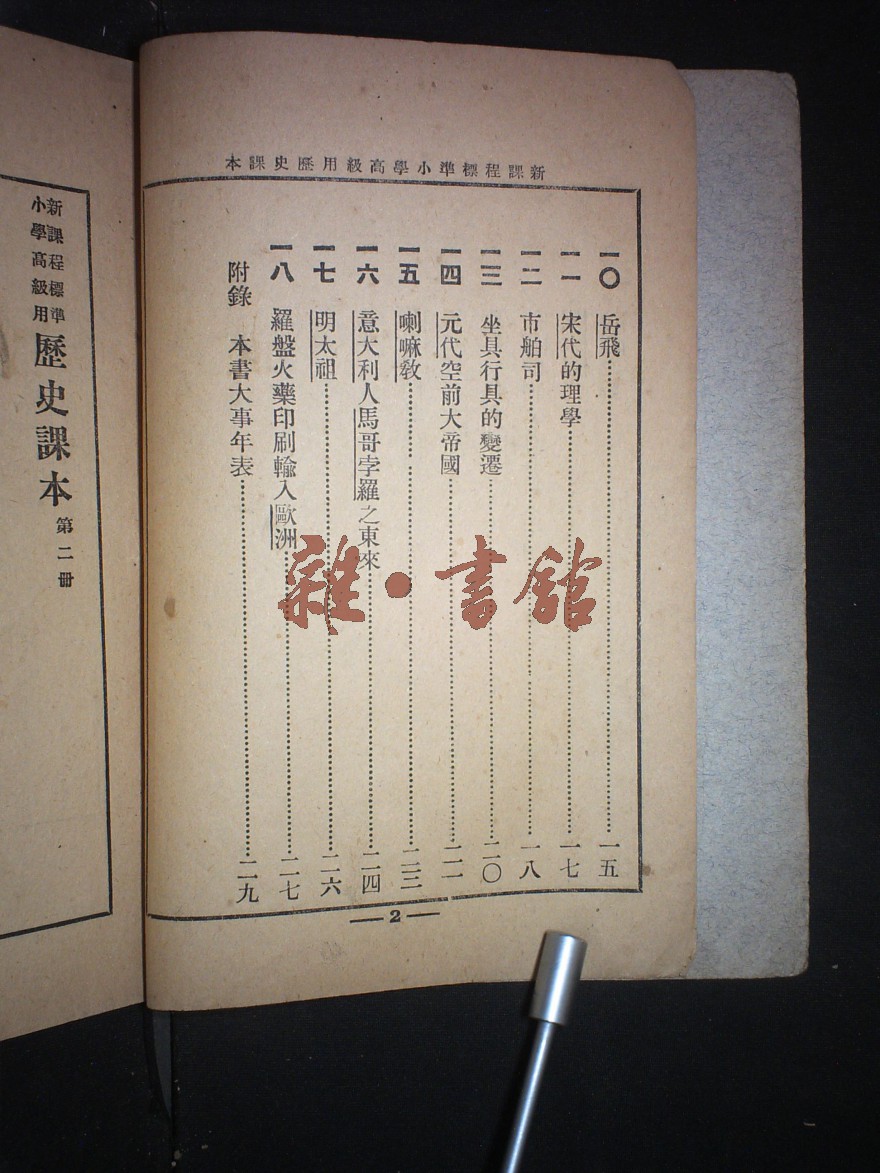 新課程標準小學高級用歷史課本
一〇 岳飛……一五
一一 宋代的理學……一七
一二 市舶司……一八
一三 坐具行具的變遷……二〇
一四 元代空前大帝國……二一
一五 喇嘛教……二三
一六 意大利人馬哥孛羅之東來……二四
一七 明太祖……二六
一八 羅盤火藥印刷輸入歐洲……二七
附錄 本書大事年表……二九
— 2 —
新課程標準
小學高級用
歷史課本 第二冊
雜·書館